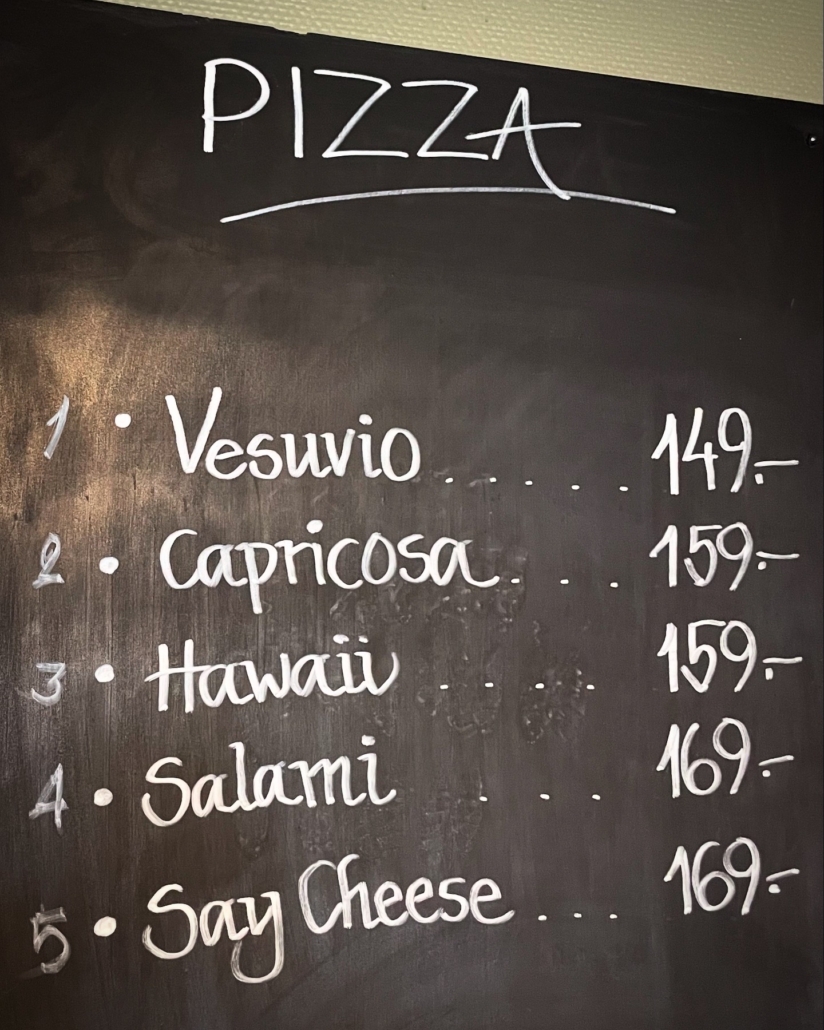 PIZZA
1 • Vesuvio ..... 149.-
2 • Capricosa... 159.-
3 • Hawaii .... 159.-
4 • Salami ... 169.-
5 • Say Cheese ... 169.-